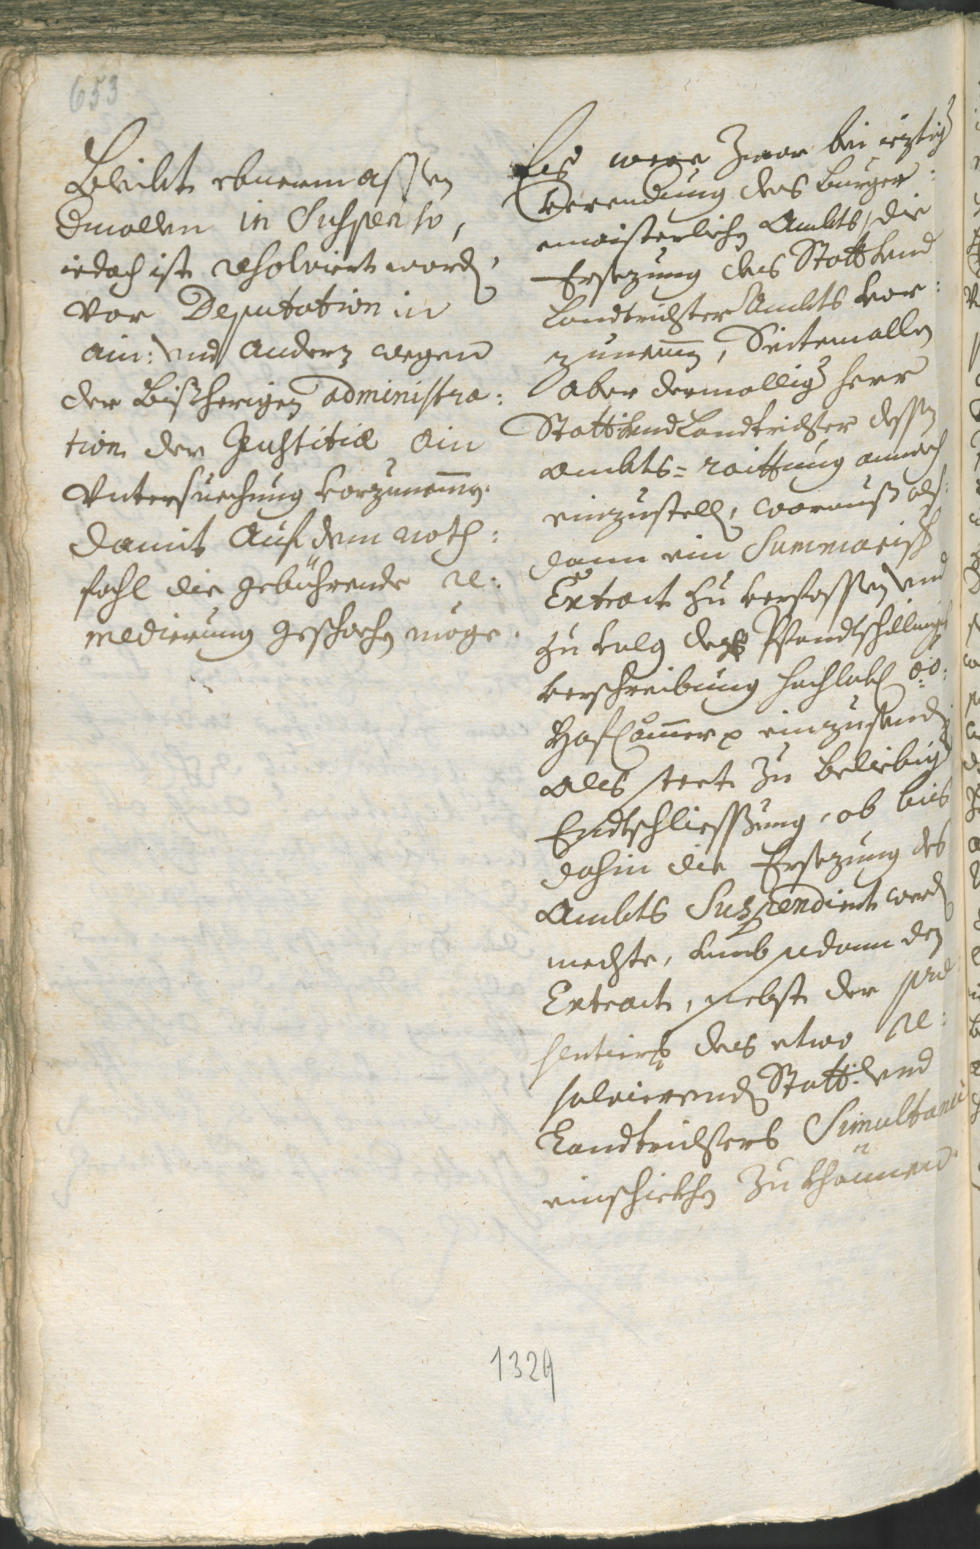 653
Bleibt ebnermassen
dmallen in Suspenso,
iedoch ist resolviert word,
vor Deputation in
ain: und andern wegen
der bißherigen administra:
tion der Justitiæ ain
Untersuechung vorzunemen.
damit auf dem noth:
fahl die gebührende re:
medierung geschechen möge.
Es were zwar bei ieztig
verendung des Burger:
maisterlichen Ambts, die
Ersezung des Statt: und
Landtrichter Ambts vor:
zunemen, Seitemallen
aber dermallig herr
Statt: und Landtrichter dessen
Ambts=raittung annoch
einzustell, worauß als:
dann ein Summarisch
Extract zu verfassen, und
zu volg des Pfandtschillings
verschreibung hochlobl o:ö:
HofCammer einzusend
als stet zu beliebig
Endtschliessung, ob bis
dahin die Ersezung des
Ambts Suspendiert werd
mechte, umb sodann den
Extract, nebst der præ
sentierg des etwo re:
solvierend Statt: und
Landtrichters Simultanee
einschickhen zu khönnen.
1329